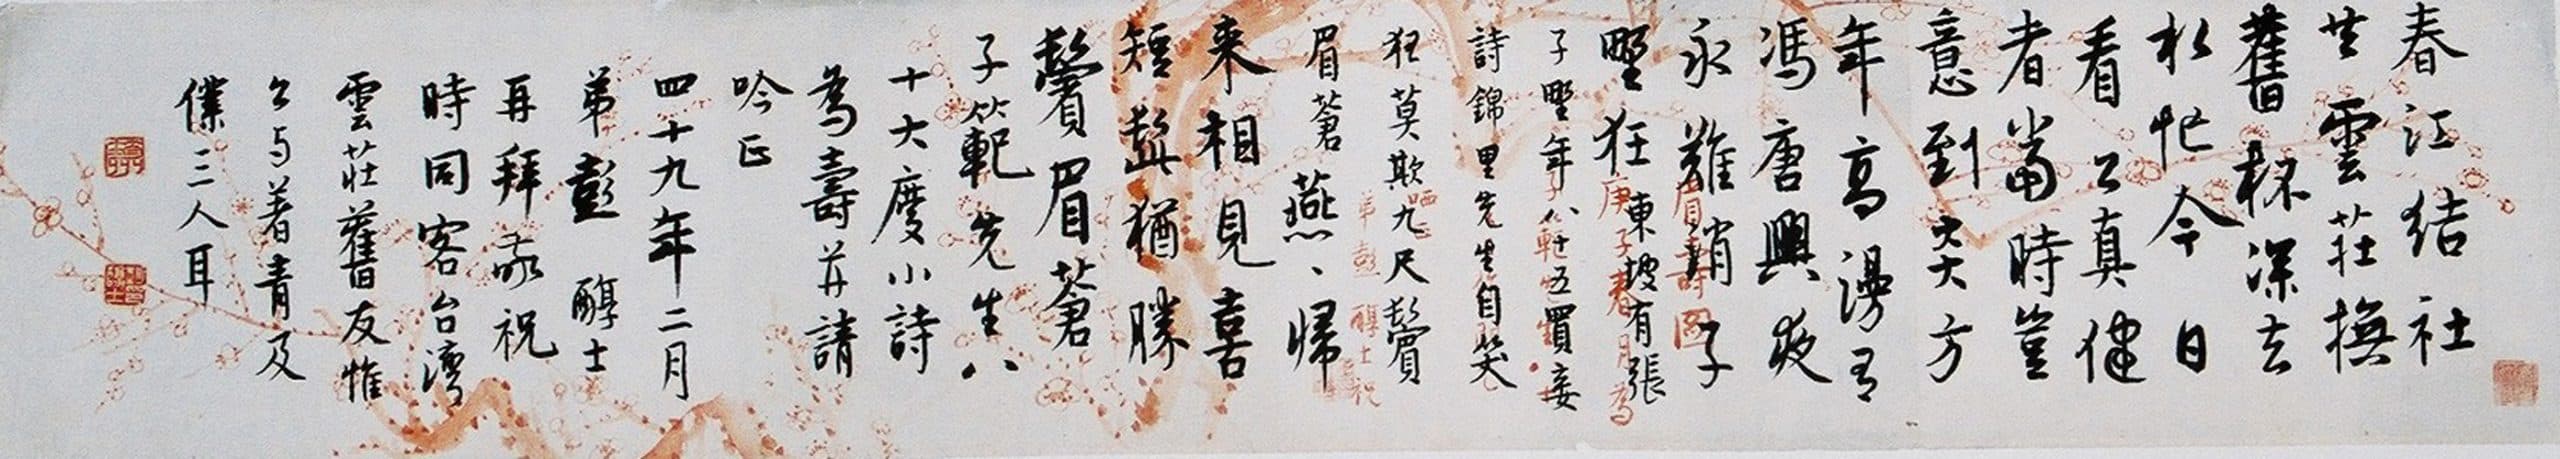 春江結社
共雲莊撫
舊杯深去
私忙今日
看公真健
者當時豈
意到炎方
年高謾有
馮唐興夜
永難消子
野狂東坡有張
子野年八十五買妾
詩錦里先生自笑
狂莫欺九尺鬢
眉蒼燕〻歸
來相見喜
短髭猶勝
鬢眉蒼
子範先生八
十大慶小詩
為壽并請
吟正
四十九年二月
弟彭醇士
再拜敬祝
時同客台灣
雲莊舊友惟
公与著青及
僕三人耳
眉壽圖
庚子春月為
子範軒
弟彭醇士祝